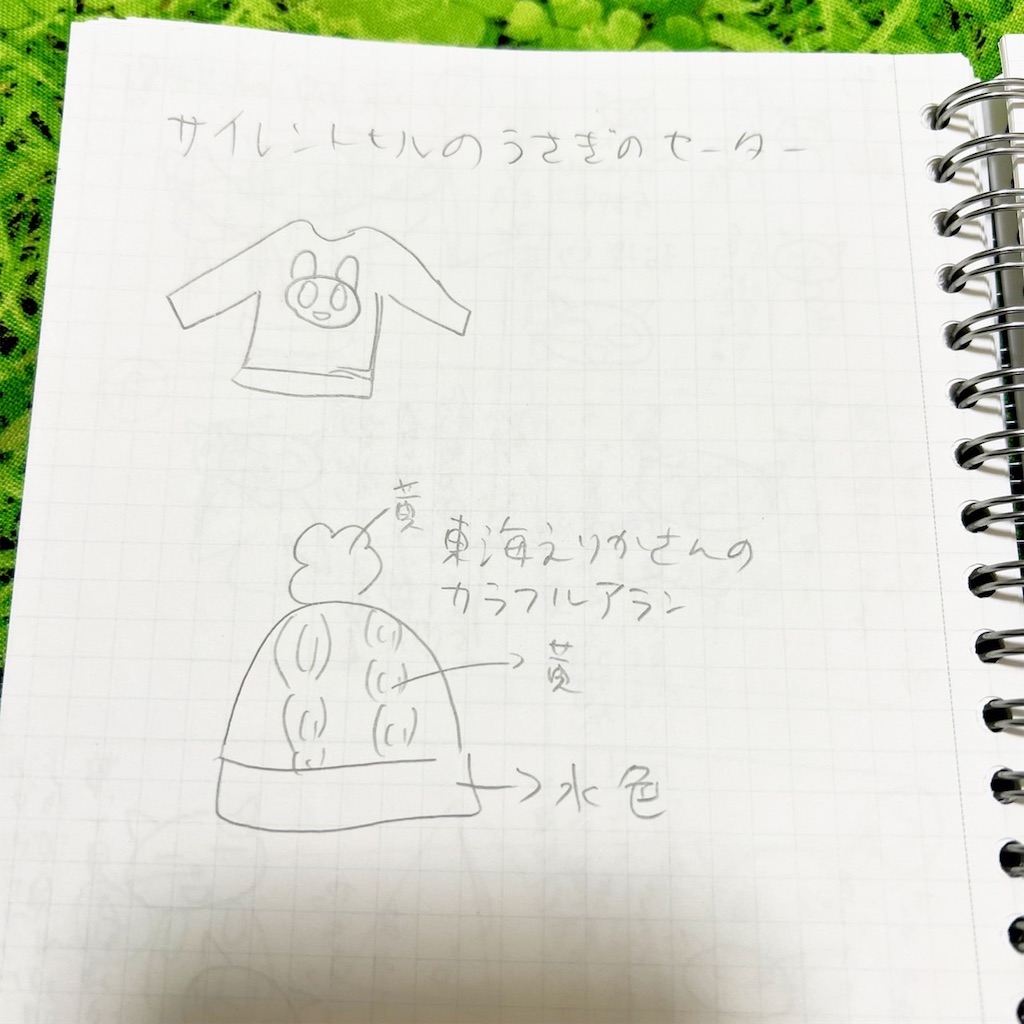 サイレントヒルのうさぎのセーター
黄
東海えりかさんの
カラフルアラン
黄
水色